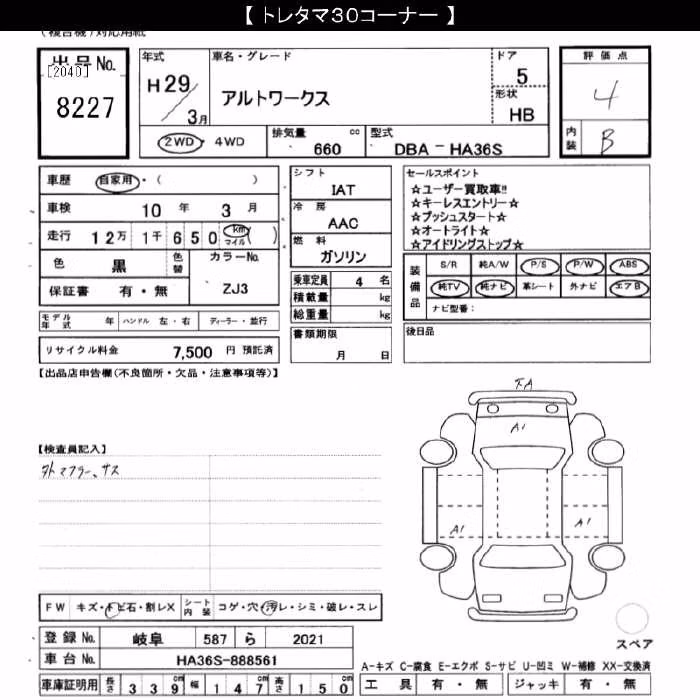 【 トレタマ30コーナー 】
(複合機)対応用紙
出品No.
[2040]
8227
年式
H29/3月
車名・グレード
アルトワークス
ドア
5
形状
HB
評価点
4
内装
B
2WD・4WD
排気量 660 cc
型式 DBA - HA36S
車歴 自家用・( )
車検 10 年 3 月
走行 12万 1千 650 km マイル ( )
色 黒 色替
カラーNo.
ZJ3
保証書 有・無
シフト
IAT
冷房
AAC
燃料
ガソリン
乗車定員 4 名
積載量 kg
総重量 kg
書類期限
月 日
セールスポイント
☆ユーザー買取車!!
☆キーレスエントリー☆
☆プッシュスタート☆
☆オートライト☆
☆アイドリングストップ☆
装備品
S/R 純A/W P/S P/W ABS
純TV 純ナビ 革シート 外ナビ エアB
ナビ型番:
後日品
モデル年式 年 ハンドル 左・右 ディーラー・並行
リサイクル料金 7,500 円 預託済
【出品店申告欄(不良箇所・欠品・注意事項等)】
【検査員記入】
外マフラー、サス
A1
A1
A1
FW キズ・トビ石・割レX シート内装 コゲ・穴・汚レ・シミ・破レ・スレ
登録No. 岐阜 587 ら 2021
車台No. HA36S-888561
車庫証明用 長さ 339 cm 幅 147 cm 高さ 150 cm
スペア
A-キズ C-腐食 E-エクボ S-サビ U-凹ミ W-補修 XX-交換済
工具 有・無 ジャッキ 有・無